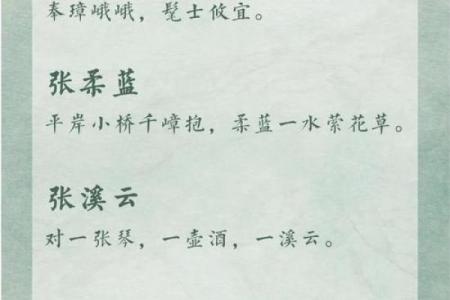 奉璋峨峨，髦士攸宜。
张柔蓝
平岸小桥千嶂抱，柔蓝一水萦花草。
张溪云
对一张琴，一壶酒，一溪云。